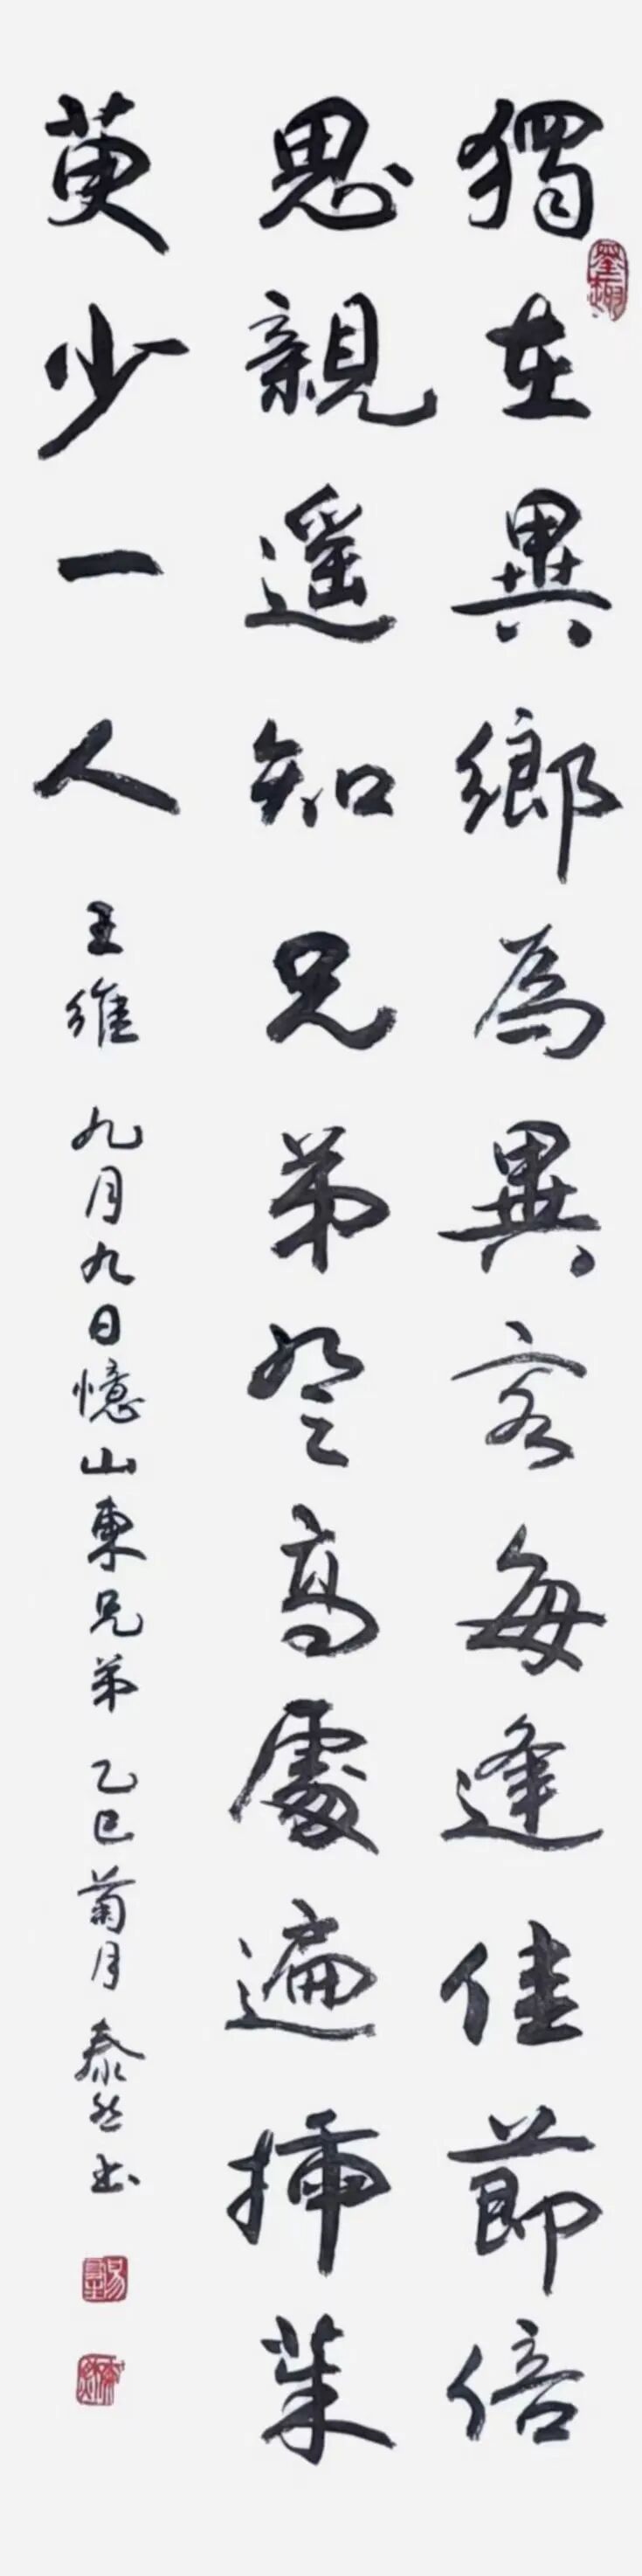 獨在異鄉為異客每逢佳節倍
思親遙知兄弟登高處遍插茱
萸少一人 王維 九月九日憶山東兄弟 乙巳菊月 泰然书